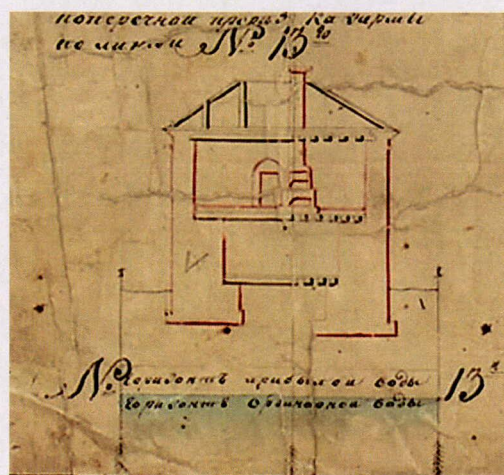 поперечной прорѣз Ка зармы
по линии № 13го
№ горизонтъ прибылой воды 13
Горизонтъ Ординарной воды